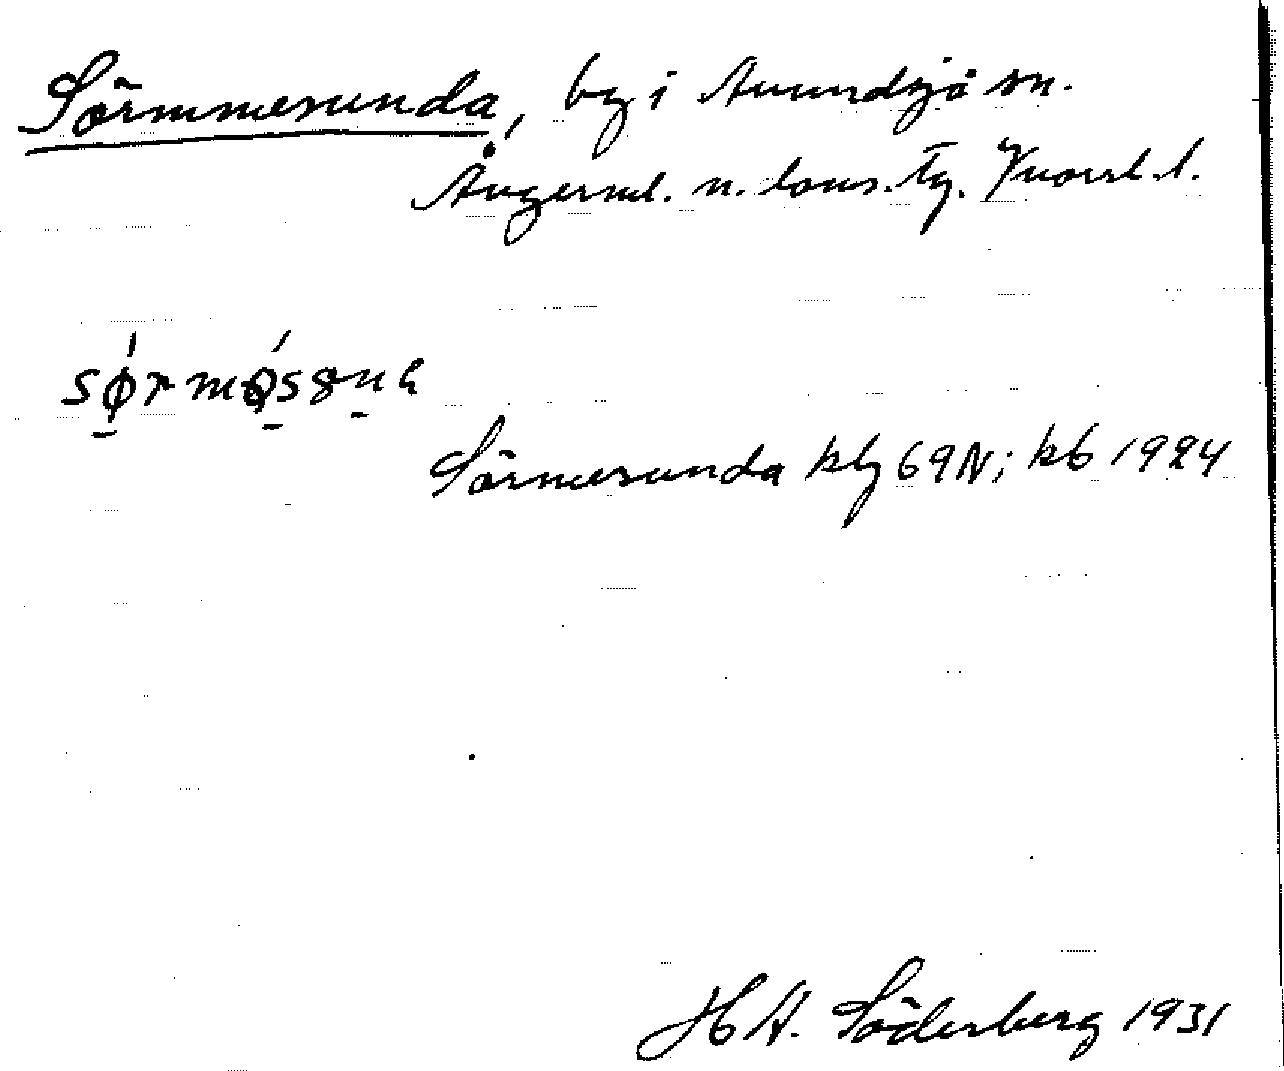 Sörmmesunda, by i Anundsjö sn.
Ångerml. n. doms. tg. Vnorrl. l.
Sörmesunda kbg 69N; kb 1924
H A. Söderberg 1931